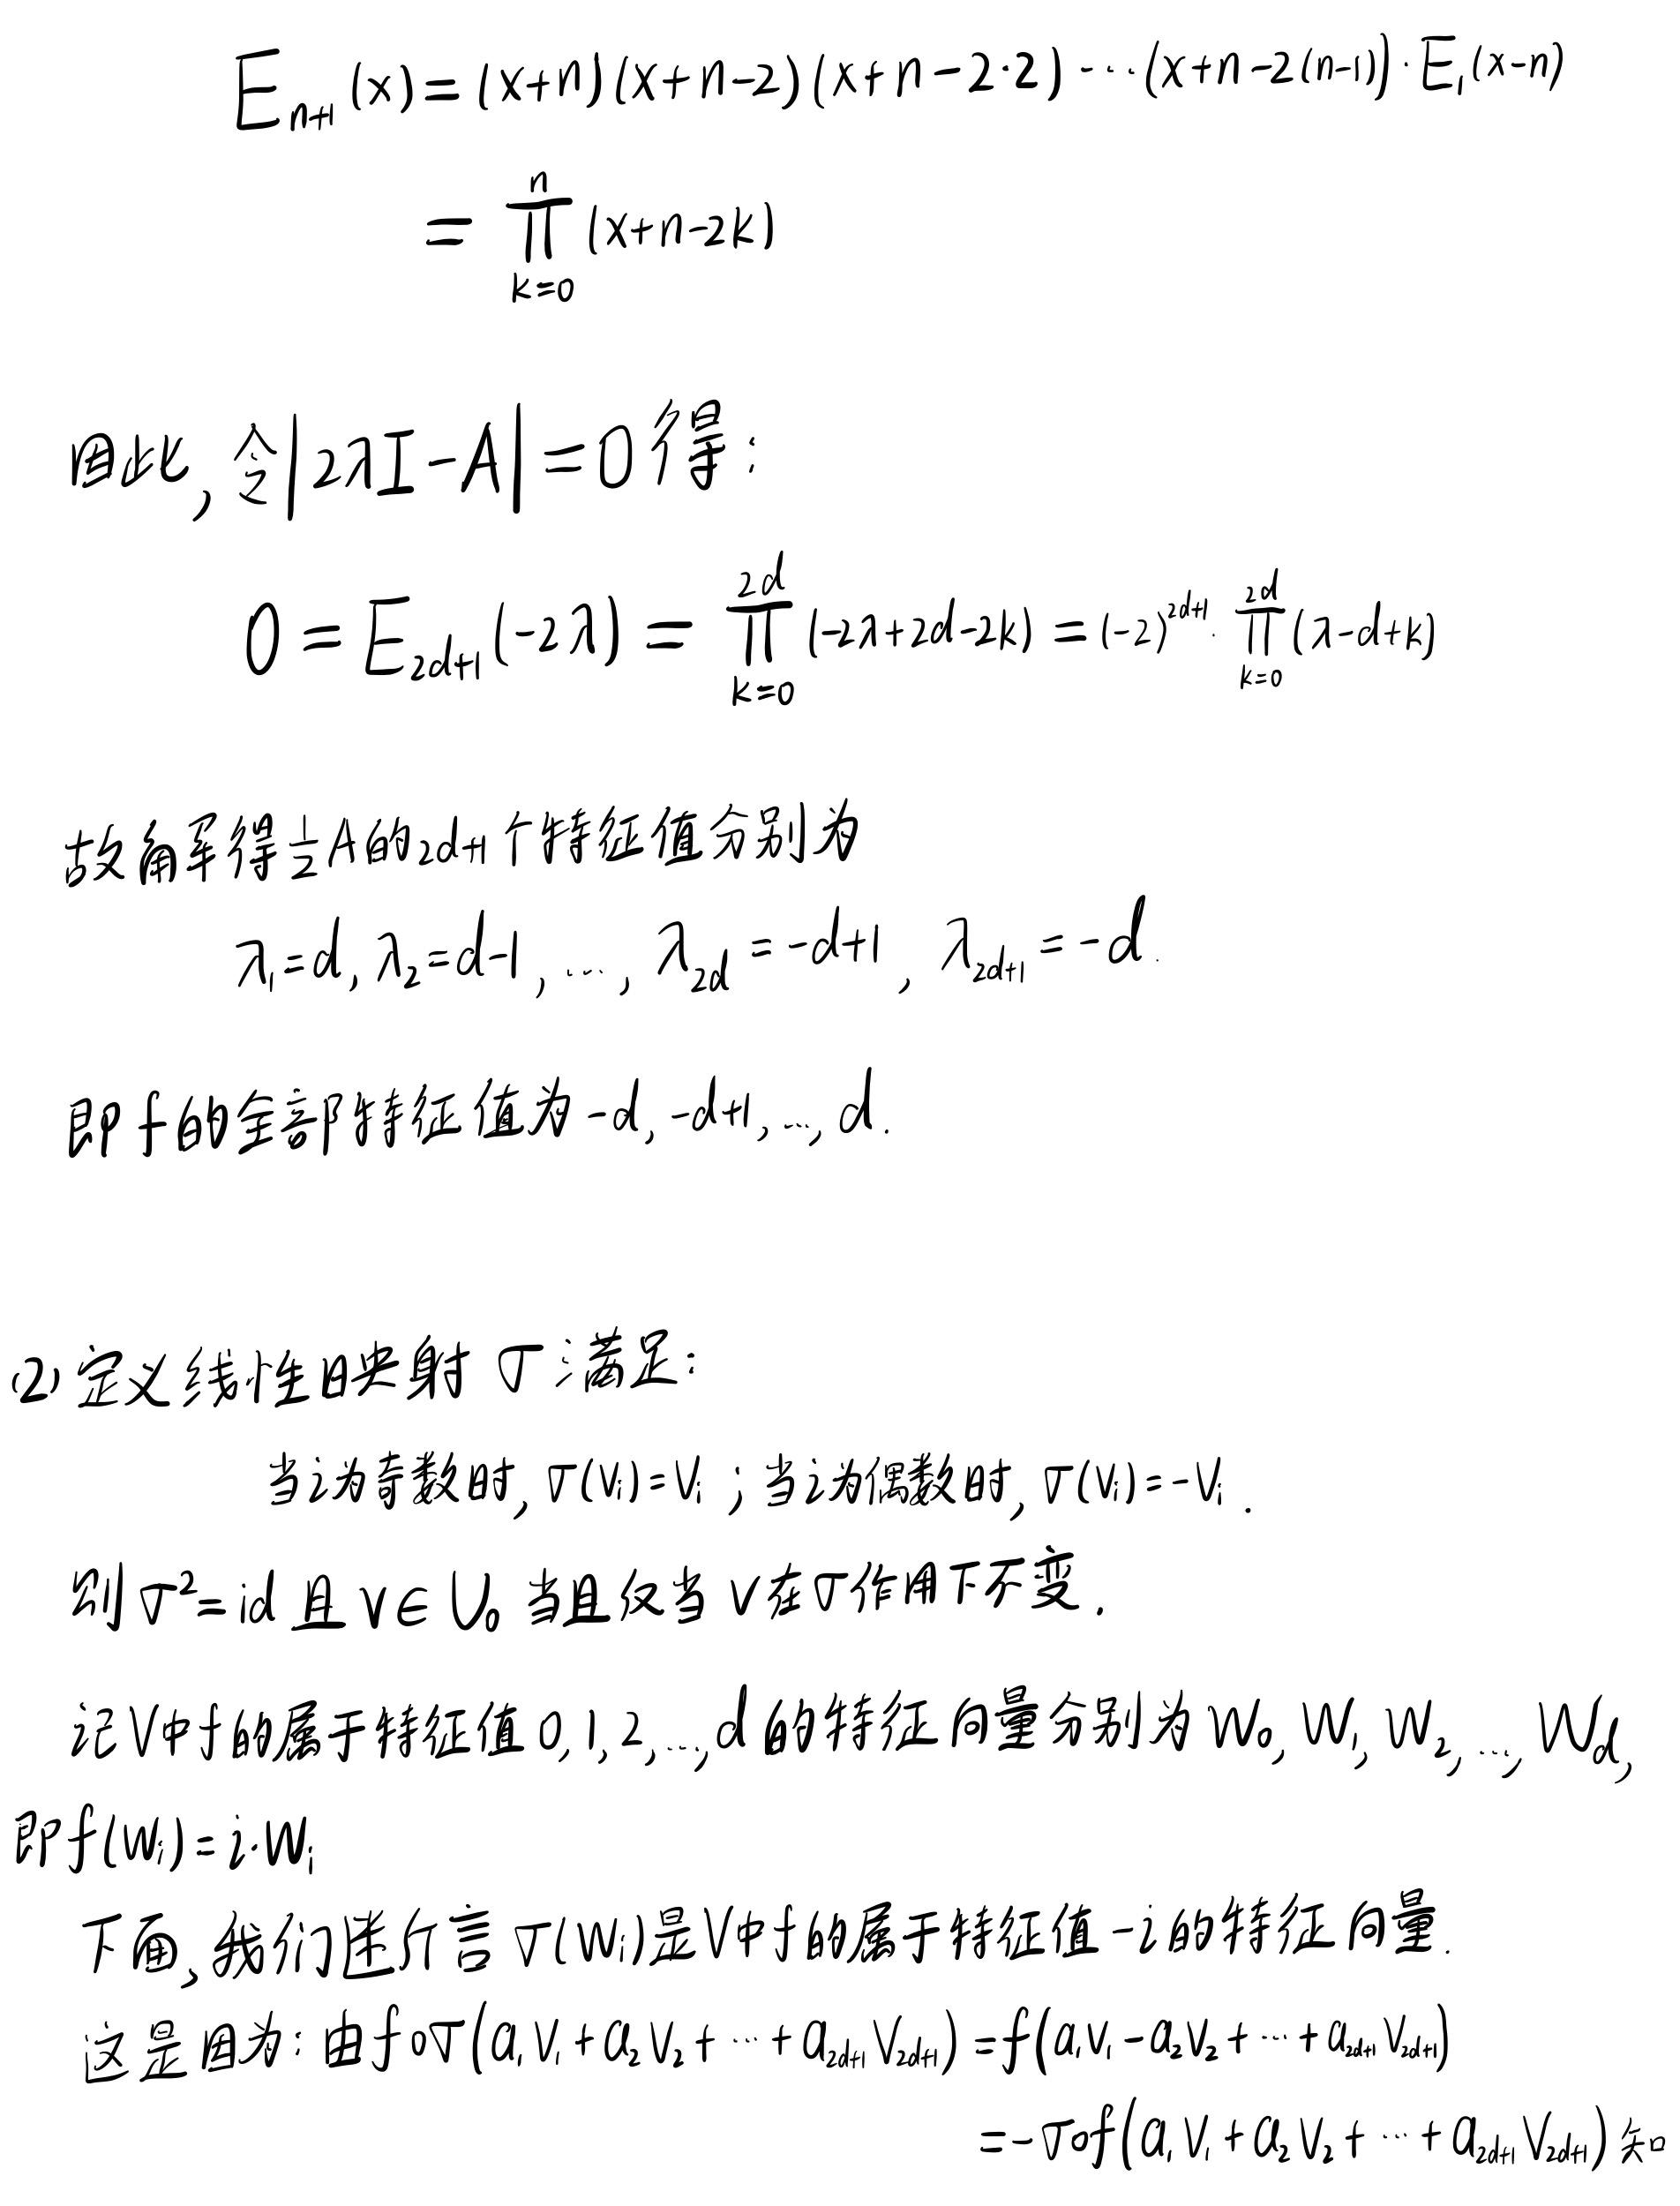 E_{n+1}(x)=(x+n)(x+n-2)(x+n-2·2)⋯(x+n-2(n-1))·E_1(x-n)
=∏_{k=0}^{n}(x+n-2k)
因此,令|2λI-A|=0得:
0=E_{2d+1}(-2λ)=∏_{k=0}^{2d}(-2λ+2d-2k)=(-2)^{2d+1}·∏_{k=0}^{2d}(λ-d+k)
故解得½A的2d+1个特征值分别为
λ_1=d, λ_2=d-1, …, λ_{2d}=-d+1, λ_{2d+1}=-d.
即f的全部特征值为-d,-d+1,…,d.
(2)定义线性映射σ满足:
当i为奇数时,σ(v_i)=v_i;当i为偶数时,σ(v_i)=-v_i.
则σ²=id且v∈U_0当且仅当v在σ作用下不变.
记V中f的属于特征值0,1,2,…,d的特征向量分别为w_0,w_1,w_2,…,w_d,
即f(w_i)=i·w_i
下面,我们断言σ(w_i)是V中f的属于特征值-i的特征向量.
这是因为:由f∘σ(a_1v_1+a_2v_2+⋯+a_{2d+1}v_{2d+1})=f(a_1v_1-a_2v_2+⋯+a_{2d+1}v_{2d+1})
=-σ∘f(a_1v_1+a_2v_2+⋯+a_{2d+1}v_{2d+1})知